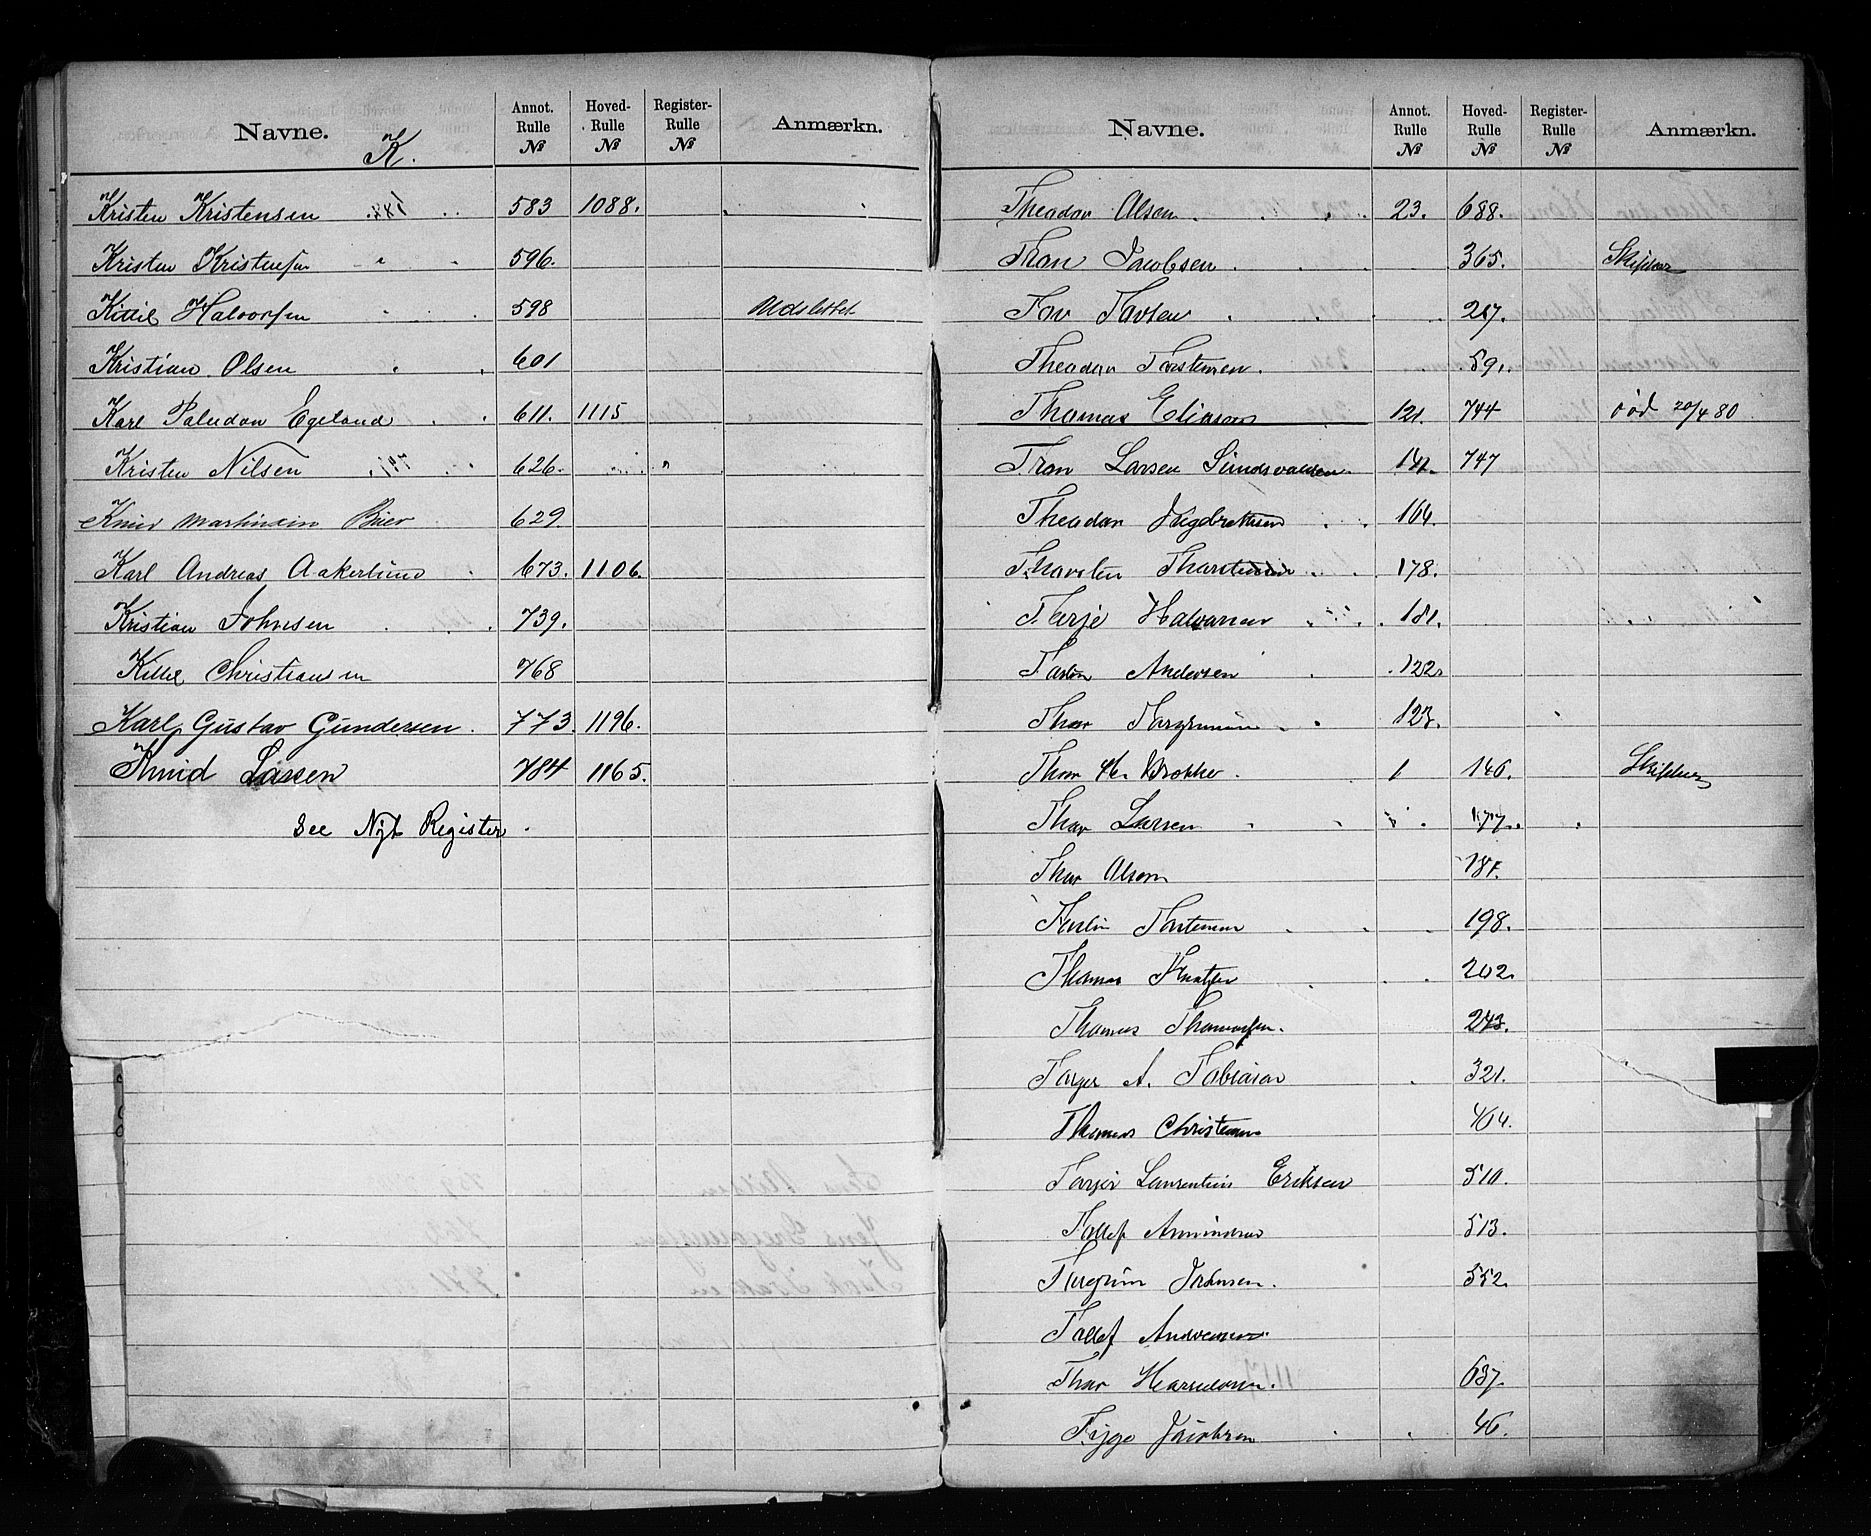 Navne. K. Annot. Rulle № Hoved-Rulle № Register-Rulle № Anmærkn.
Kristen Kristensen 583 1088.
Kristen Kristensen 596.
Kittil Halvorsen 598 Udslettet
Kristian Olsen 601
Karl Paludan Egeland 611. 1115
Kristen Nilsen 626.
Knud Martinsen 629
Karl Andreas Aakerlund 673. 1106.
Kristian Johnsen 739.
Kittil Christiansen 768
Karl Gustav Gundersen. 773. 1196.
Knud Larsen 784 1165.
See Nyt Register.
Navne. Annot. Rulle № Hoved-Rulle № Register-Rulle № Anmærkn.
Theodor Olsen 23. 688.
Thor Jacobsen 365. Skipper
Tov Tovsen 217.
Theodor Torstensen. 59.
Thomas Eliasen 121. 744 død 20/4 80
Tron Larsen 141. 747
Theodor Ingebretsen 164.
Thorsten Thorstensen 178.
Terje Halvorsen 181.
Andersen 122.
Thor 123.
Thor H. Brokke. 1 146. Skipper
Thor Larsen 177.
Thor Olsen 181.
Torstensen 198.
Thomas 202.
Thomas Thomassen. 243.
Torger A. Tobiasen 321.
Thomas Christensen 404.
Torger Laurentius Eriksen 510.
Tollef Amundsen 513.
Torgrim Johnsen. 552.
Tollef Andreassen.
Thor 637.
Jacobsen 46.